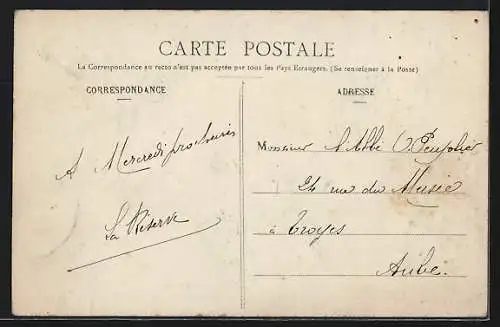 CARTE POSTALE
La Correspondance au recto n'est pas acceptée par tous les Pays Etrangers. (Se renseigner à la Poste)
CORRESPONDANCE
A Mercredi prochain
La Réserve
ADRESSE
Monsieur l'Abbé O.
24 rue du Musée
à Troyes
Aube.